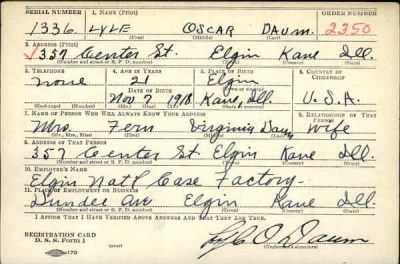 SERIAL NUMBER 1. NAME (Print) ORDER NUMBER
1336 LYLE OSCAR DAUM. 2350
(First) (Middle) (Last)
2. ADDRESS (Print)
357 Center St. Elgin Kane Ill.
(Number and street or R. F. D. number) (Town) (County) (State)
3. TELEPHONE 4. AGE IN YEARS 5. PLACE OF BIRTH 6. COUNTRY OF CITIZENSHIP
none 21 Elgin
DATE OF BIRTH (Town or county)
Nov 9 1918. Kane, Ill. U.S.A.
(Exchange) (Number) (Mo.) (Day) (Yr.) (State or country)
7. NAME OF PERSON WHO WILL ALWAYS KNOW YOUR ADDRESS 8. RELATIONSHIP OF THAT PERSON
Mrs. Fern Virginia Daum Wife
(Mr., Mrs., Miss) (First) (Middle) (Last)
9. ADDRESS OF THAT PERSON
357 Center St Elgin Kane Ill.
(Number and street or R. F. D. number) (Town) (County) (State)
10. EMPLOYER'S NAME
Elgin Nat'l Case Factory-
11. PLACE OF EMPLOYMENT OR BUSINESS
Dundee Ave Elgin Kane Ill.
(Number and street or R. F. D. number) (Town) (County) (State)
I AFFIRM THAT I HAVE VERIFIED ABOVE ANSWERS AND THAT THEY ARE TRUE.
REGISTRATION CARD
D. S. S. Form 1
Lyle O Daum
(Registrant's signature)